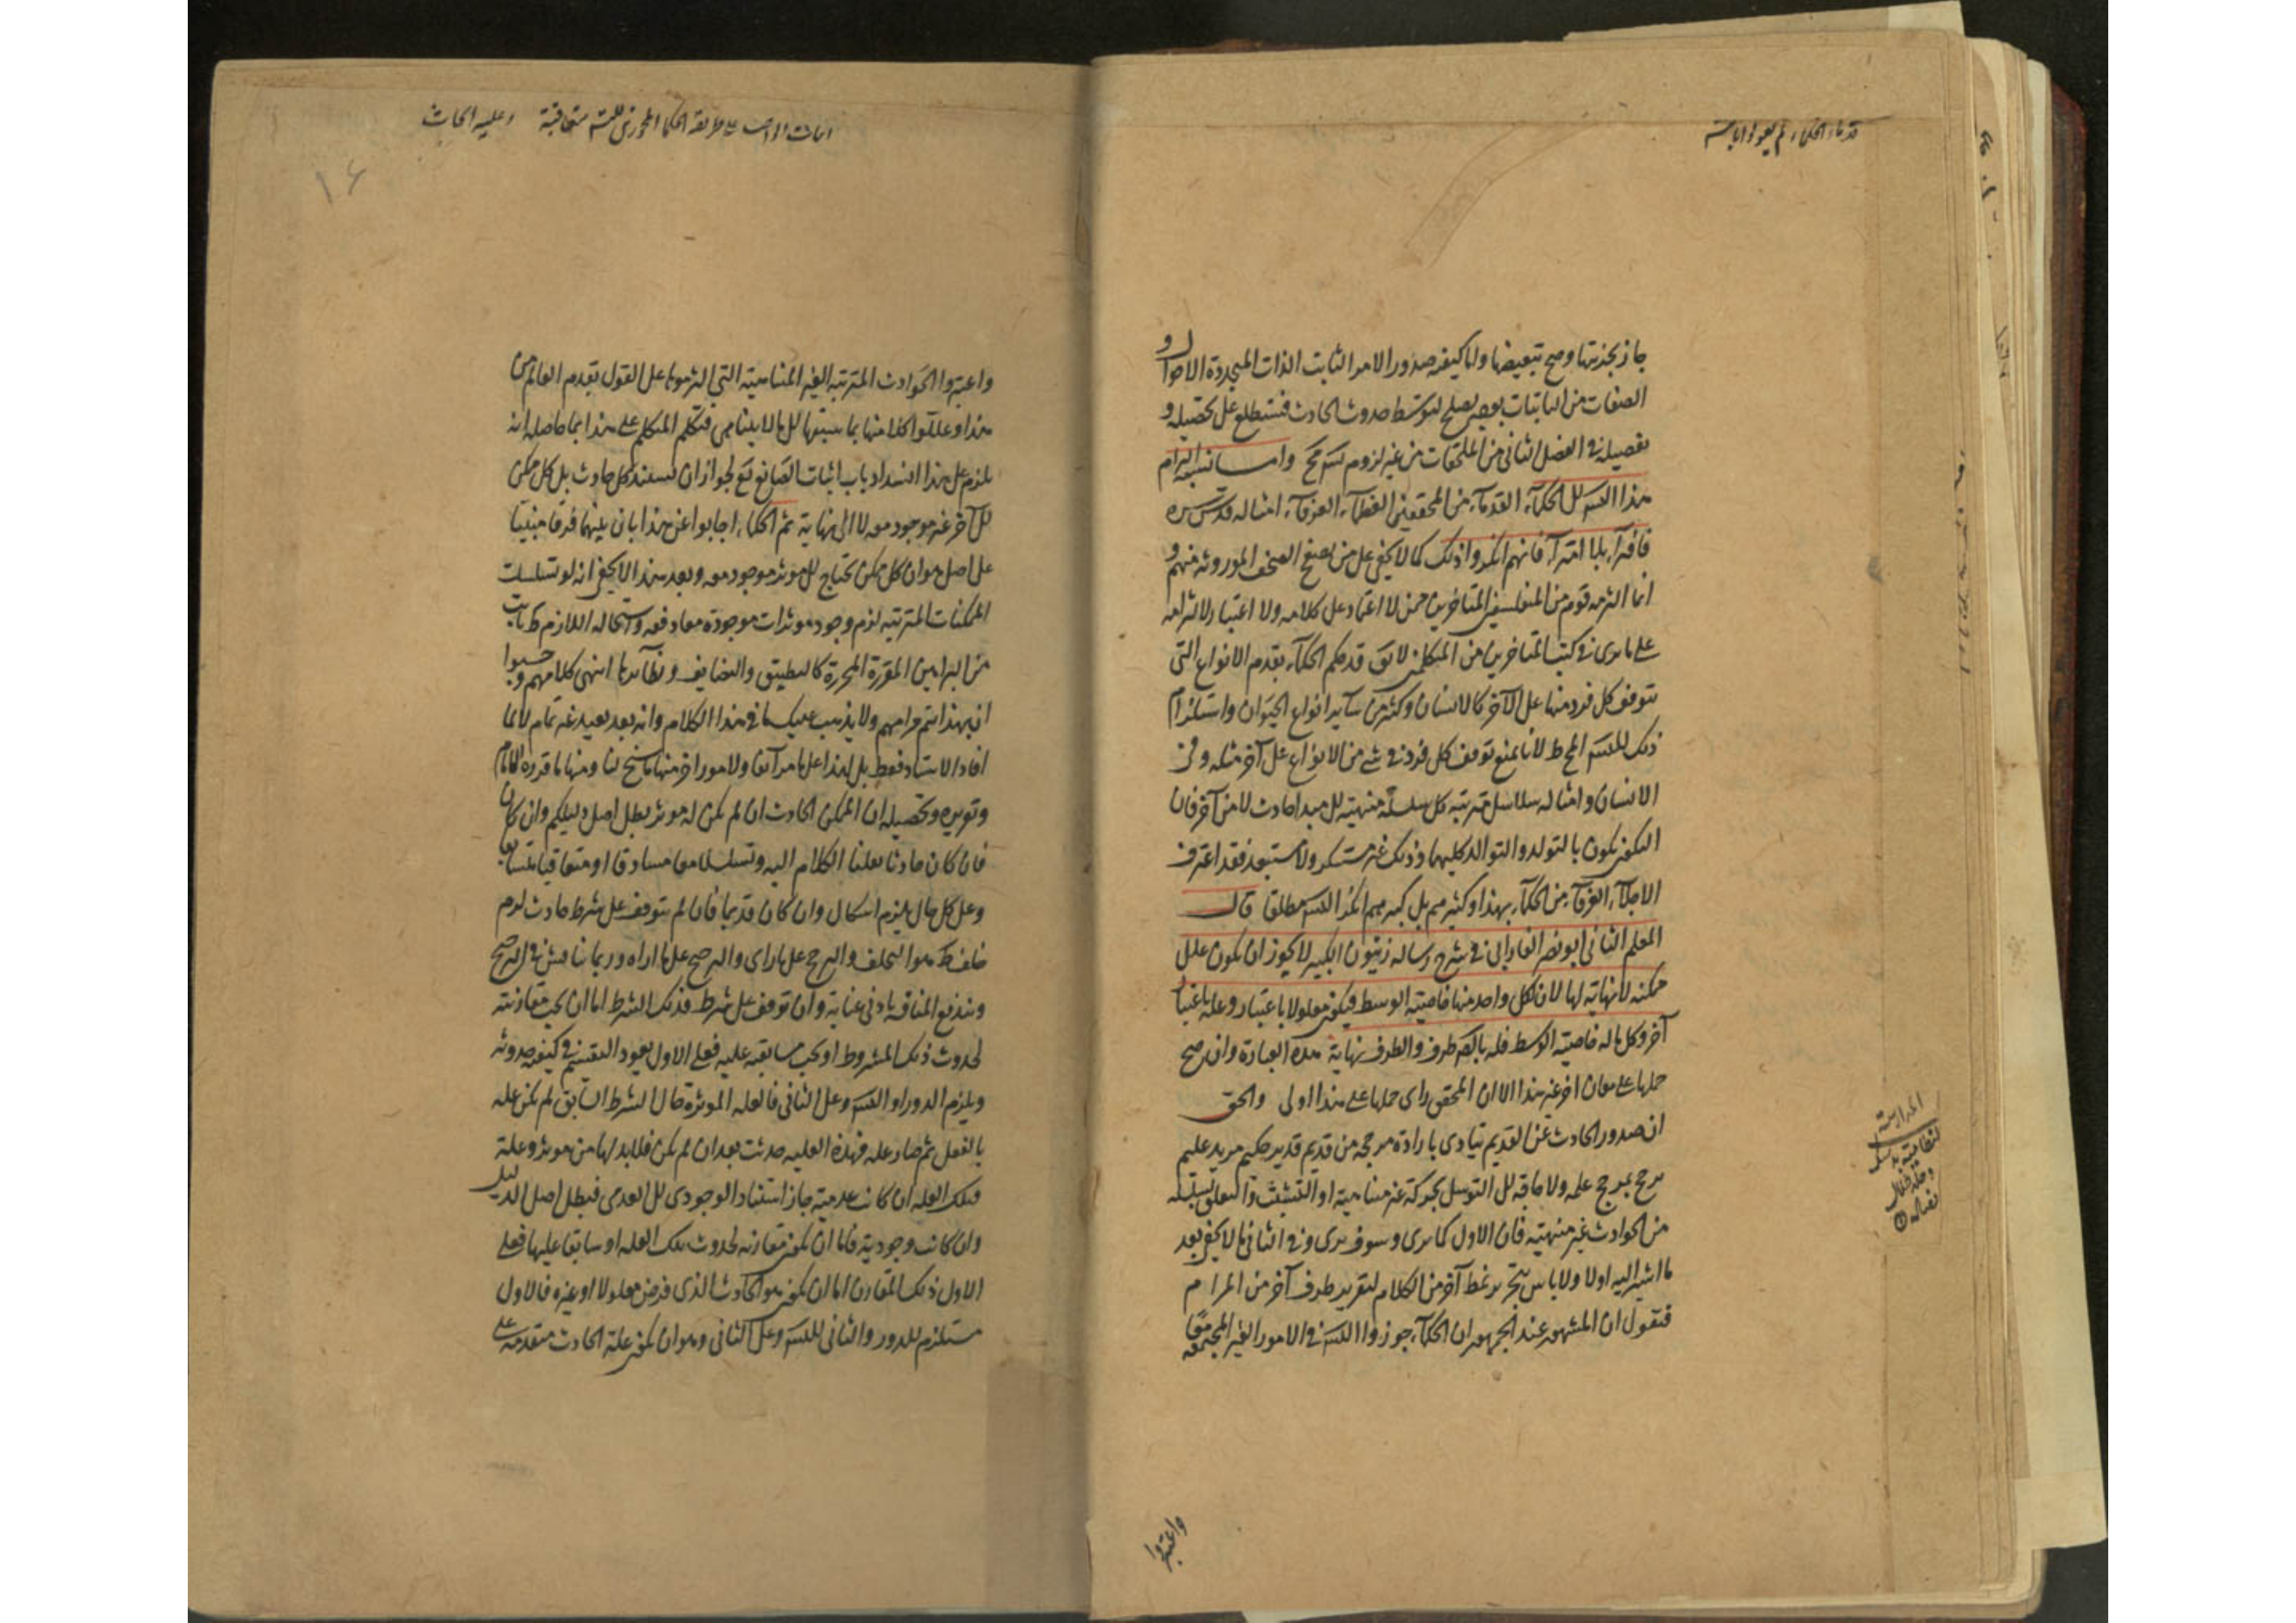 قدماء الحكماء لم يقولوا بالتسـ
جاز تجزيتها وصح تبعيضها واما كيفيه صدور الامر الثابت الذات المتجددة الاحوال و
الصفات من الثابتات بوجه يصلح لتوسط حدوث الحادث فستطلع على تحصيله و
تفصيله فى الفصل الثانى من الملحقات من غير لزوم تسـ مح واما نسبة التزام
هذا التسـ الى الحكمآء القدمآء من المحققين العظمآء العرفآء امثاله قدس سره
فافترآء بلا امترآء فانهم انكروا ذلك كما لا يخفى على من تصفح الصحف الموروثه منهم و
انما التزمه قوم من المتفلسفين المتاخرين ممن لا اعتماد على كلامه ولا اعتبار لالتزامه
على ما يرى فى كتب المتاخرين من المتكلمين لا يق قد حكم الحكمآء بقدم الانواع التى
يتوقف كل فرد منها على الآخر كالانسان وكثير من سآير انواع الحيوان واستلزام
ذلك للتسـ المح ظ لانا نمنع توقف كل فرد فى شئ من الانواع على آخر مثله وفى
الانسان وامثاله سلاسل مترتبه كل سلسلة منتهية الى مبدا حادث لا من آخر فان
التكون يكون بالتولد والتوالد كليهما وذلك غير مستنكر ولا مستبعد فقد اعترف
الاجلآء العرفآء من الحكمآء بهذا وكثير منهم بل كبيرهم انكر التسـ مطلقا قال
المعلم الثانى ابو نصر الفارابى فى شرح رساله زينون الكبير لا يجوز ان يكون علل
ممكنه لا نهاية لها لان لكل واحد منها خاصية الوسط فيكون معلولا باعتبار وعلة باعتبار
آخر وكل ما له خاصية الوسط فله بالضـ طرف والطرف نهاية هذه العبارة وان صح
حملها على معان اخر غير هذا الا ان المحقق راى حملها على هذا اولى والحق
ان صدور الحادث عن القديم يتادى بارادة مرجحه من قديم قدير حكيم مريد عليم
مرجح بمرجح علمه ولا حاجة الى التوسل بحركة غير متناهية او التشبث والتعلق بسلسله
من الحوادث غير منتهية فان الاول كما يرى وسوف يرى وفى الثانى ما لا يخفى بعد
ما اشير اليه اولا ولا باس بتحرير نمط آخر من الكلام لتقرير طرف آخر من المرام
فنقول ان المشهور عند الجمهور ان الحكمآء جوزوا التسـ فى الامور الغير المجتمعه معا
واعتبروا
اثبات الواجب على طريقة الحكما المجوزين للتسـ متعاقبة وعليه ابحاث
١٦
واعتبروا الحوادث المترتبه الغير المتناهية التى التزموها على القول بقدم العالم من
هذا وعللوا كلا منها بما سبقها الى ما لا يتناهى فتكلم المتكلم على هذا بما حاصله انه
يلزم على هذا انسداد باب اثبات الصانع تع لجواز ان يستند كل حادث بل كل ممكن
الى آخر غير موجود معه لا الى نهاية ثم الحكماء اجابوا عن هذا بان بينهما فرقا مبنيا
على اصل هو ان كل ممكن يحتاج الى موثر موجود معه وبعد هذا لا يخفى انه لو تسلسلت
الممكنات المترتبه لزم وجود موثرات موجودة معا دفعه واستحاله اللازم ظ ثابت
من البراهين المقررة المحررة كالتطبيق والتضايف ونظآيرها انتهى كلامهم وحسبوا
ان بهذا يتم مرامهم ولا يذهب عليك ما فى هذا الكلام وانه بعد بعيد غير تمام لا لما
افاد الاستاد فقط بل لهذا على ما مر آنفا ولامور اخر منها ما سنح لنا ومنها ما قرره الامام
وتحريره وتحصيله ان الممكن الحادث ان لم يكن له موثر بطل اصل دليلكم وان كان
فان كان حادثا نقلنا الكلام اليه وتسلسلا معا مسادقا او متعاقبا متسابقا
وعلى كل حال يلزم اشكال وان كان قديما فان لم يتوقف على شرط حادث لزم
خلف ظ هو التخلف والترجح على ما راى والترجيح على ما اراه وربما يناقش فى الترجيح
ويندفع المناقشه بادنى عناية وان توقف على شرط فذلك الشرط اما ان يجب مقارنته
لحدوث ذلك المشروط او يجب سابقيته عليه فعلى الاول يعود التقسيم فى كيفيه حدوثه
ويلزم الدور او التسـ وعلى الثانى فالعله الموثرة حال الشرط السابق لم يكن علة
بالفعل ثم صار علة فهذه العليه حدثت بعد ان لم يكن فلا بد لها من موثر وعلة
فتلك العلة ان كانت عدمية جاز استناد الوجودى الى العدمى فبطل اصل الدليل
وان كانت وجودية فاما ان يكون مقارنه لحدوث تلك العله او سابقا عليها فعلى
الاول ذلك المقارن اما ان يكون هو الحادث الذى فرض معلولا او غيره فالاول
مستلزم للدور والثانى للتسـ وعلى الثانى وهو ان يكون علة الحادث متقدمه على